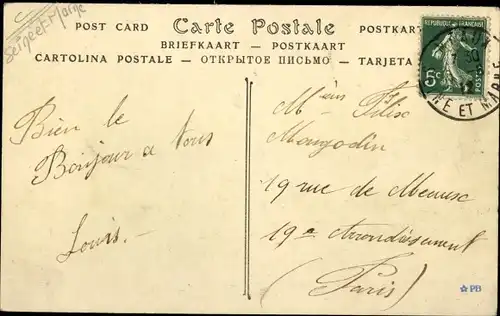 Seine et Marne
POST CARD Carte Postale POSTKART
BRIEFKAART — POSTKAART
CARTOLINA POSTALE — ОТКРЫТОЕ ПИСЬМО — TARJETA
REPUBLIQUE FRANÇAISE
5c
7 30
12
NE ET MARNE
Bien le
Bonjour a tous
Louis. -
Félix
Mongodin
19 rue de Meaux
19e Arrondissement
(Paris)
PB